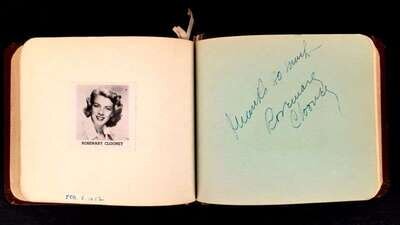 ROSEMARY CLOONEY
FEB 8 1952
Thanks so much
Rosemary
Clooney